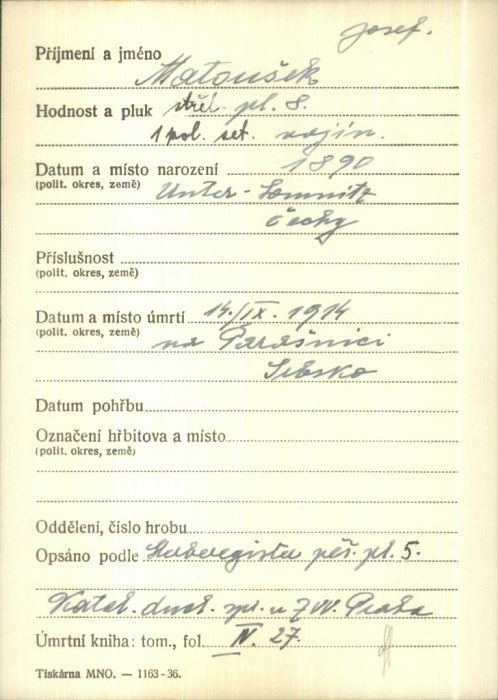 Josef.
Příjmení a jméno
Matoušek
Hodnost a pluk střel. pl. 8.
1 pol. set. vojín.
Datum a místo narození 1890
(polit. okres, země) Unter-Lomnitz
Čechy
Příslušnost
(polit. okres, země)
Datum a místo úmrtí 14./IX. 1914
(polit. okres, země) na Parašnici
Srbsko
Datum pohřbu
Označení hřbitova a místo
(polit. okres, země)
Oddělení, číslo hrobu
Opsáno podle pěš. pl. 5.
Katol. duch. spr. u ZVV. Praha
Úmrtní kniha: tom., fol. IV. 27.
Tiskárna MNO. — 1163-36.